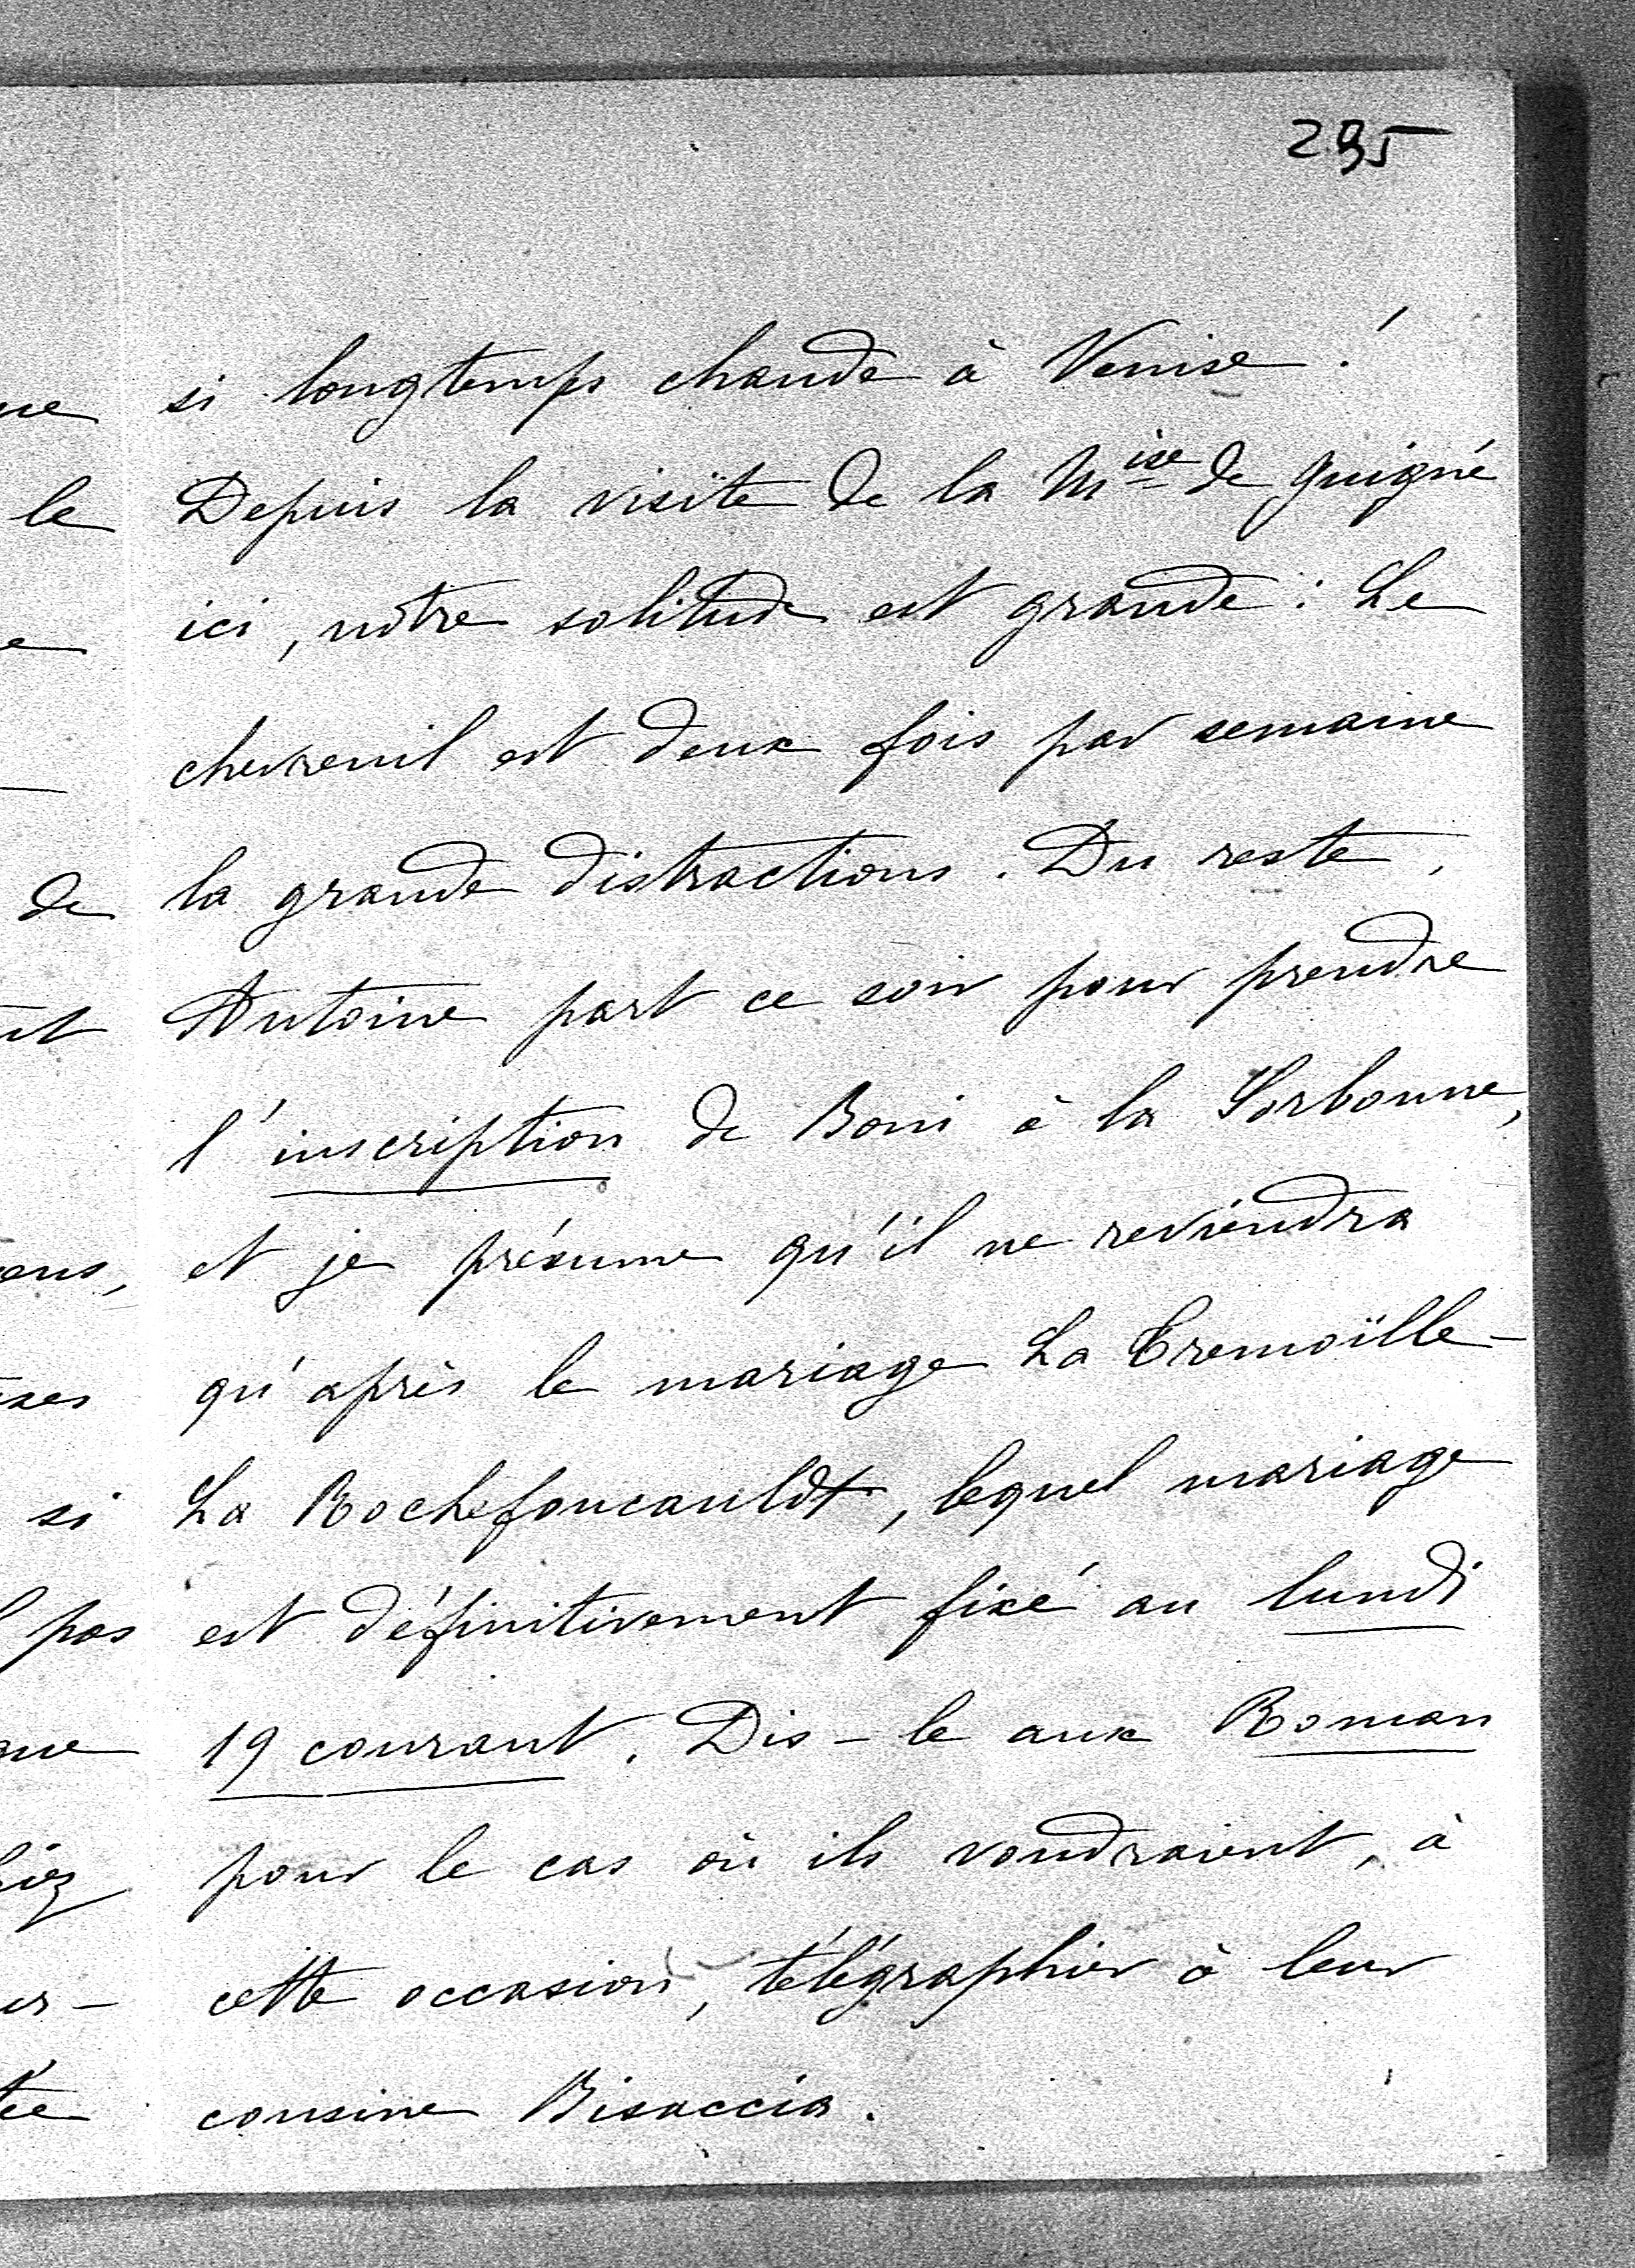 295
si longtemps chaude à Venise !
Depuis la visite de la Mise de Guigné
ici, notre solitude est grande : Le
chevreuil est deux fois par semaine
la grande distractions. Du reste,
Antoine part ce soir pour prendre
l'inscription de Boni à la Sorbonne,
et je présume qu'il ne reviendra
qu'après le mariage La Tremoïlle-
La Rochefoucauldt, lequel mariage
est définitivement fixé au lundi
19 courant. Dis-le aux Roman
pour le cas où ils voudraient, à
cette occasion, télégraphier à leur
cousine Bisaccia.
le
de
si
pas